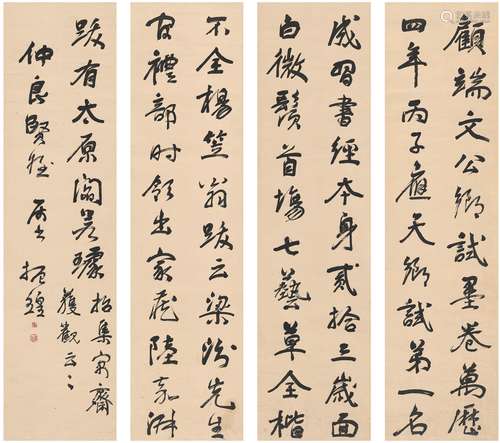 顧端文公鄉試墨卷萬歷
四年丙子應天鄉試第一名
成習書經本身貳拾三歲面
白微鬚首場七藝草全楷
不全楊笠翁跋云梁汾先生
官禮部时領出家藏陸嘉淋
跋有太原閻若璩招集宋齋
獲觀云云
仲良賢姪